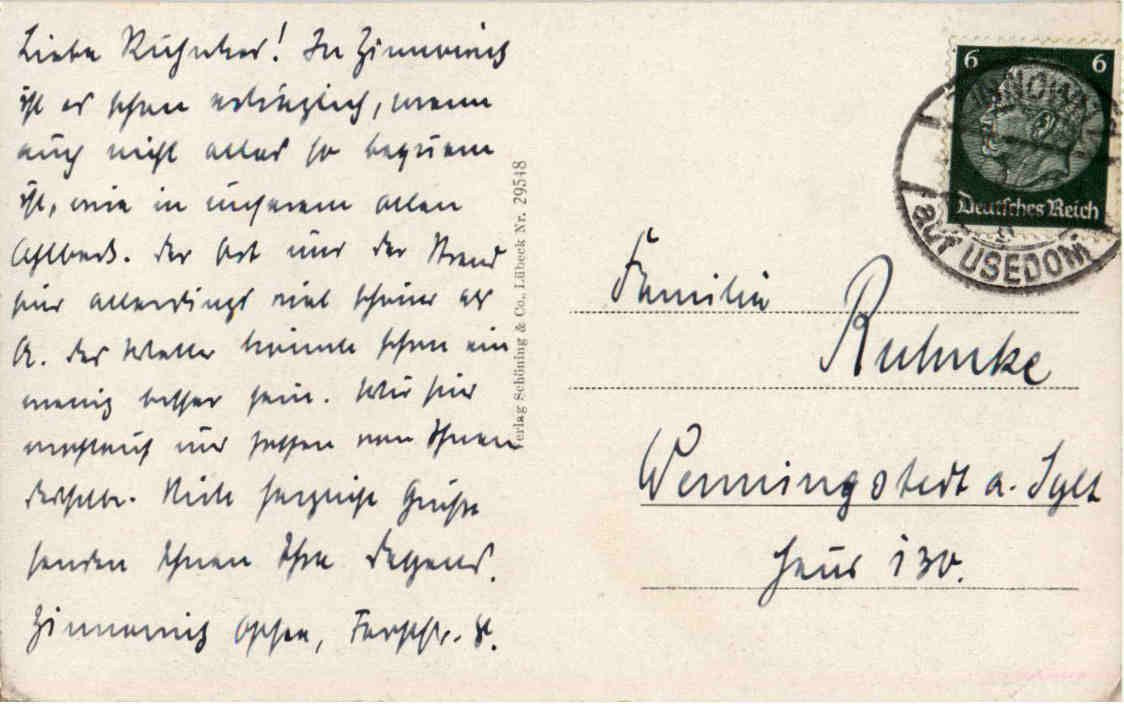 Liebe Ruhnkes! In Zinnowitz
ist es schon erträglich, wenn
auch nicht alles so bequem
ist, wie in unserem alten
Ahlbeck. Der Ort und der Strand
sind allerdings viel schöner als
A. Das Wetter könnte schon ein
wenig besser sein. Wir sind
wohlauf und hoffen von Ihnen
dasselbe. Viele herzliche Grüße
senden Ihnen Ihre
Zinnowitz Ostsee,
Verlag Schöning & Co., Lübeck Nr. 29548
6 6
Deutsches Reich
ZINNOWITZ
auf USEDOM
Familie
Ruhnke
Wenningstedt a. Sylt
Haus 130.